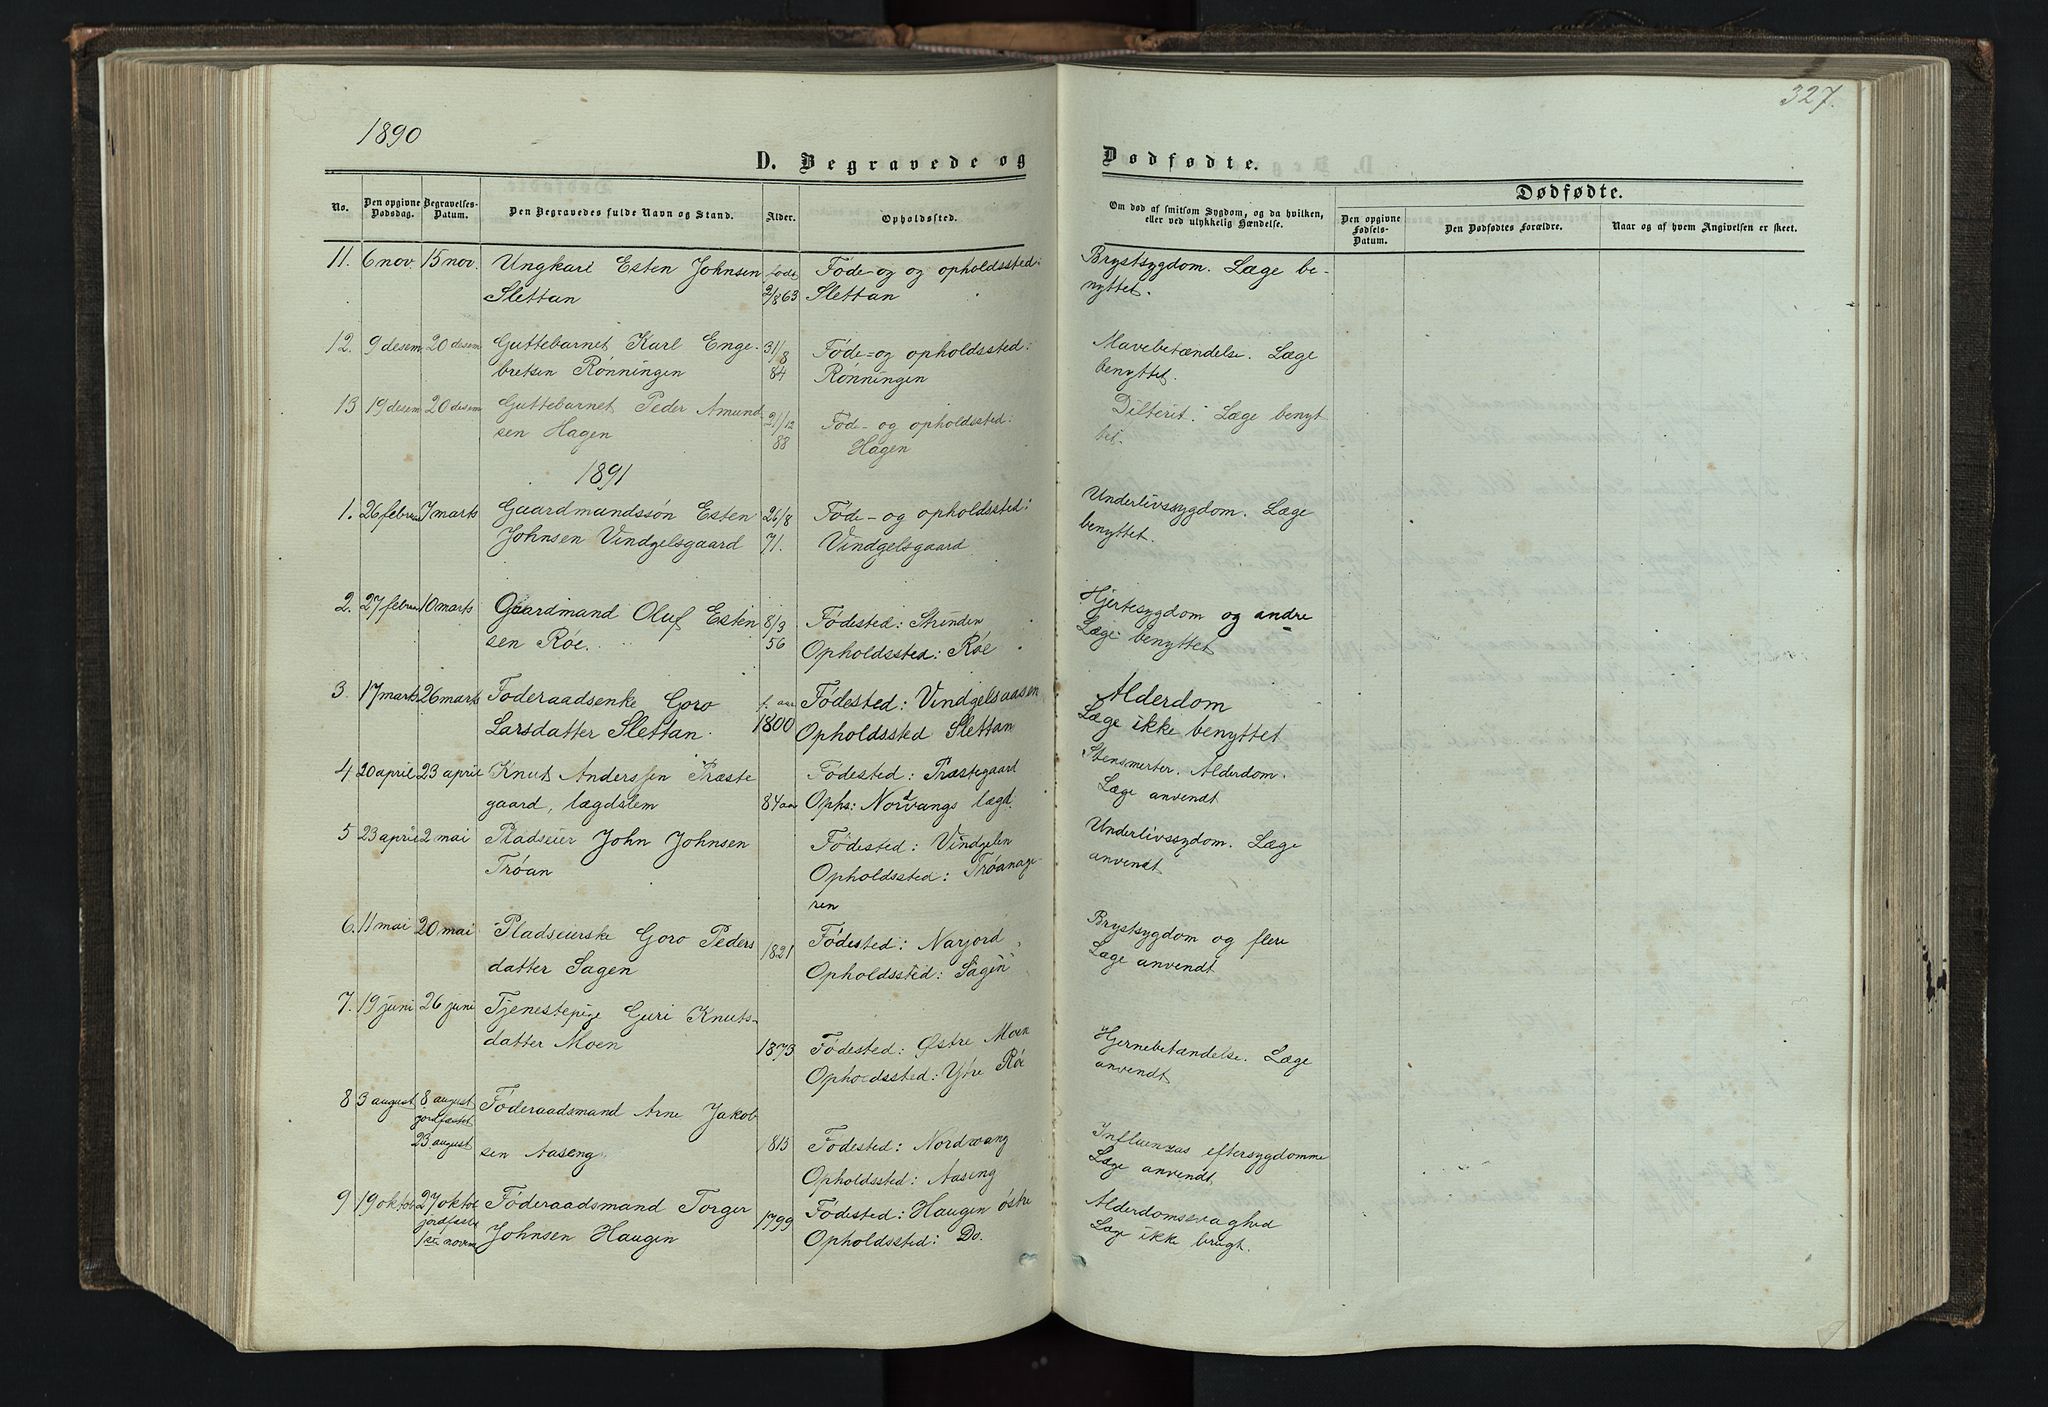 327.
1890
D. Begravede og Dødfødte.
No.
Den opgivne Dødsdag.
Begravelses-Datum.
Den Begravedes fulde Navn og Stand.
Alder.
Opholdssted.
Om død af smitsom Sygdom, og da hvilken, eller ved ulykkelig Hændelse.
Dødfødte.
Den opgivne Fødsels-Datum.
Den Dødfødtes Forældre.
Naar og af hvem Angivelsen er skeet.
11. 6 nov. 15 nov. Ungkarl Esten Johnsen født Føde- og og opholdssted: Brystsygdom. Læge be-
Slettan 2/8 63 Slettan nyttet.
12. 9 desem 20 desem Guttebarnet Karl Enge- 31/8 Føde- og opholdssted: Mavebetændelse. Læge
bretsen Rønningen 84 Rønningen benyttet.
13 19 desem 20 desem Guttebarnet Peder Amund 21/12 Føde- og opholdssted: Difterit. Læge benyt
sen Hagen 88 Hagen tet.
1891
1. 26 februar 7 marts Gaardmandssøn Esten 26/8 Føde- og opholdssted: Underlivssygdom. Læge
Johnsen Vindgelsgaard 71. Vindgelsgaard benyttet.
2. 27 febru 10 marts Gaardmand Oluf Esten 8/3 Fødested: Strinden Hjertesygdom og andre
sen Røe. 56 Opholdssted: Røe Læge benyttet
3. 17 marts 26 marts Føderaadsenke Goro f. aar Fødested: Vindgelsaasen Alderdom
Larsdatter Slettan. 1800 Opholdssted Slettan Læge ikke benyttet
4 20 april 23 april Knut Anderssen Præste Fødested: Præstegaard Stensmerter. Alderdom.
gaard, lægdslem 84 aar Ophs: Nordvangs lægd. Læge anvendt
5 23 april 2 mai Pladseier John Johnsen Fødested: Vindgelen Underlivssygdom. Læge
Trøan Opholdssted: Trøanage- anvendt
ren
6. 11 mai 20 mai Pladseierske Goro Peders Fødested: Narjord Brystsygdom og flere
datter Sagen 1821 Opholdssted: Sagen Læge anvendt
7. 19 juni 26 juni Tjenestepige Guri Knuts-
datter Moen 1873 Fødested: Østre Moen Hjernebetændelse. Læge
Opholdssted: Ytre Røe anvendt
8 3 august 8 august Føderaadsmand Arne Jakob
jordfæstet
23. august sen Aaseng 1815 Fødested: Nordvang Influenzas eftersygdomme
Opholdssted: Aaseng Læge anvendt.
9 19 oktob 27 oktob Føderaadsmand Torger 1799 Fødested: Haugen østre Alderdomssvaghed
jordfæstet
1ste novem Johnsen Haugen Opholdssted: Do. Læge ikke brugt.